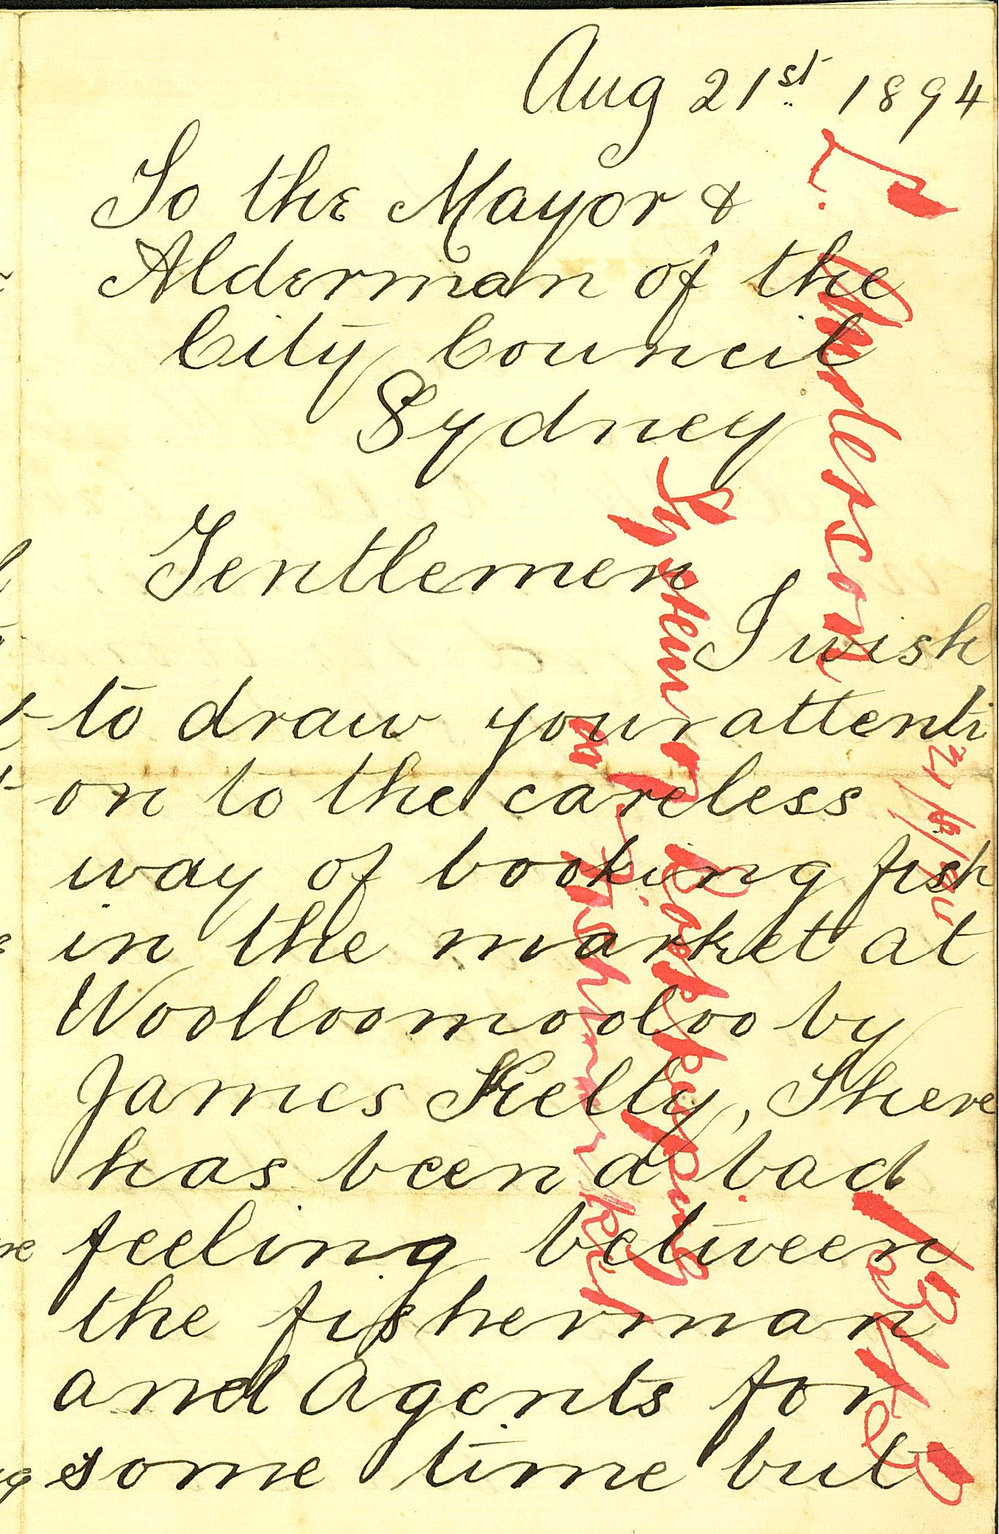 Aug 21st 1894
To the Mayor &
Alderman of the
City Council
Sydney
Gentlemen
I wish
to draw your attenti
on to the careless
way of booking fish
in the market at
Woolloomooloo by
James Kelly, There
has been a bad
feeling between
the fisherman
and Agents for
some time but
L. Anderson
System of Bookkeeping
at Fishmarket